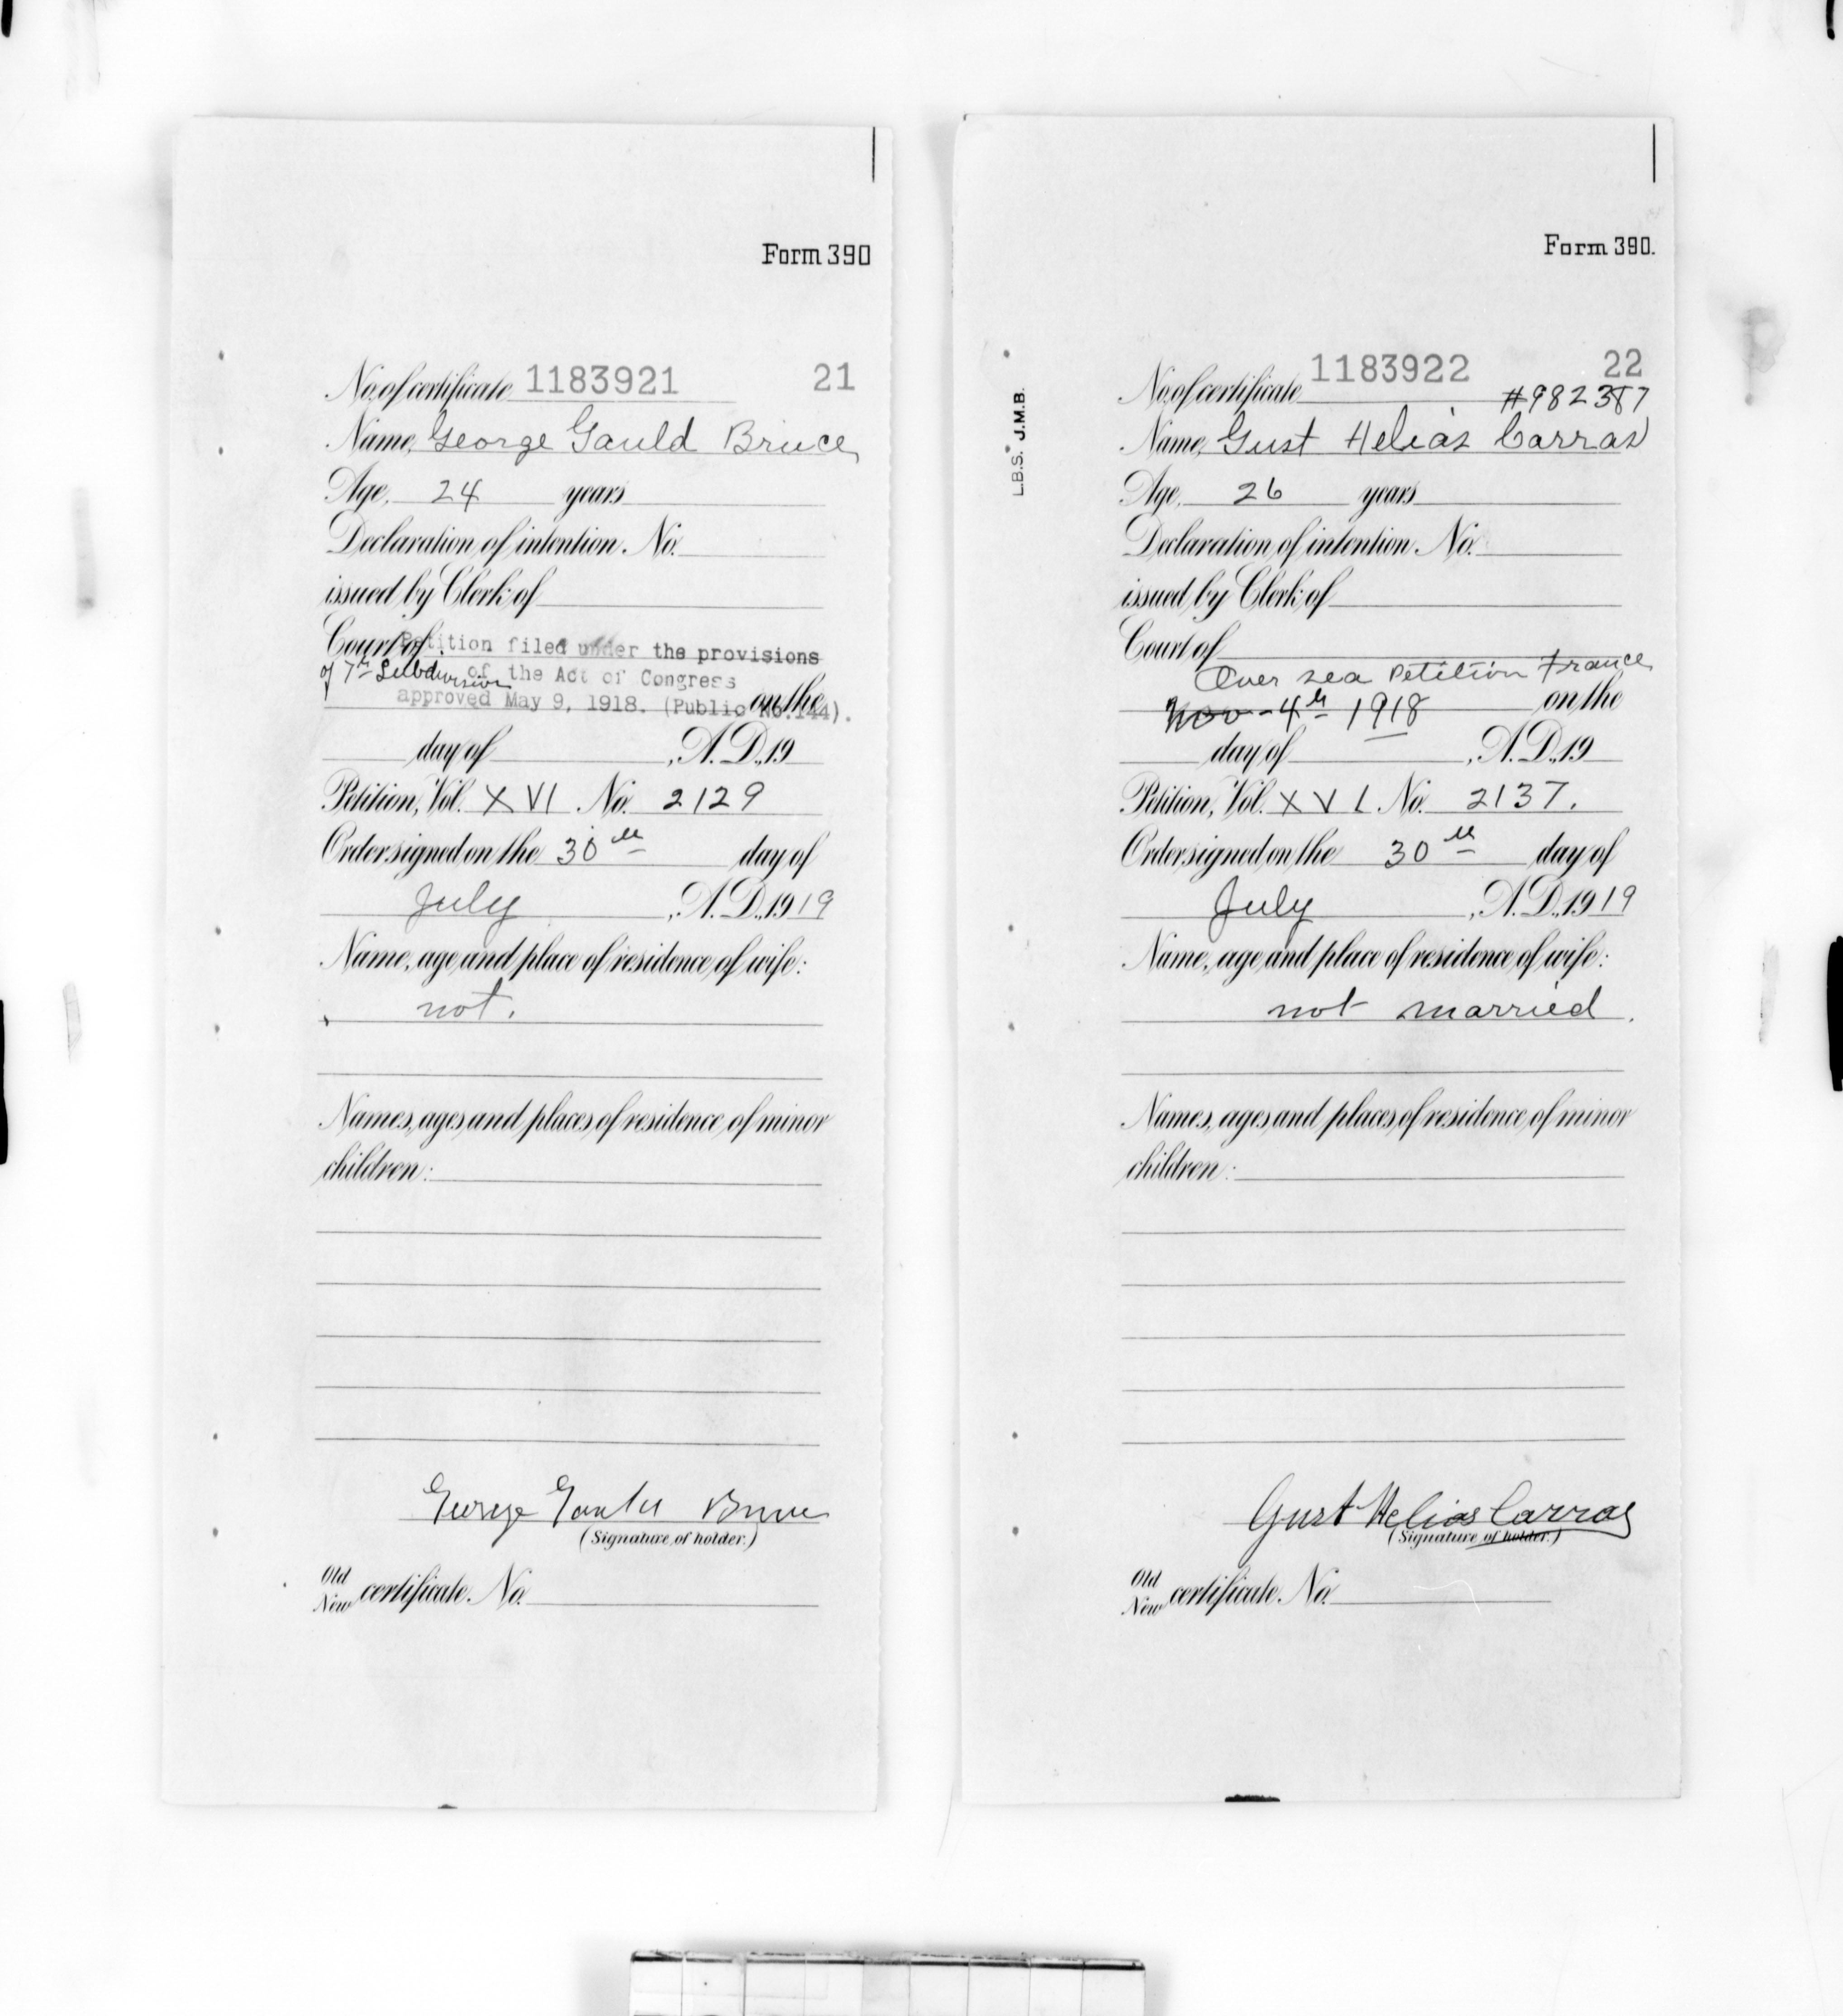 Form 390
No. of certificate 1183921 21
Name, George Gauld Bruce
Age, 24 years
Declaration of intention No.
issued by Clerk of
Court of Petition filed under the provisions
of 7th Subdivision of the Act of Congress
approved May 9, 1918. (Public No. 144). on the
day of , A.D. 19
Petition, Vol. XVI No. 2129
Order signed on the 30th day of
July , A.D. 1919
Name, age and place of residence of wife:
not.
Names, ages and places of residence of minor
children:
George Gauld Bruce
(Signature of holder.)
Old
New certificate No.
Form 390.
L.B.S. J.M.B.
No. of certificate 1183922 22
#982387
Name, Gust Helias Carras
Age, 26 years
Declaration of intention No.
issued by Clerk of
Court of
Over sea Petition France
Nov - 4th 1918 on the
day of , A.D. 19
Petition, Vol. XVI No. 2137.
Order signed on the 30th day of
July , A.D. 1919
Name, age and place of residence of wife:
not married.
Names, ages and places of residence of minor
children:
Gust Helias Carras
(Signature of holder.)
Old
New certificate No.